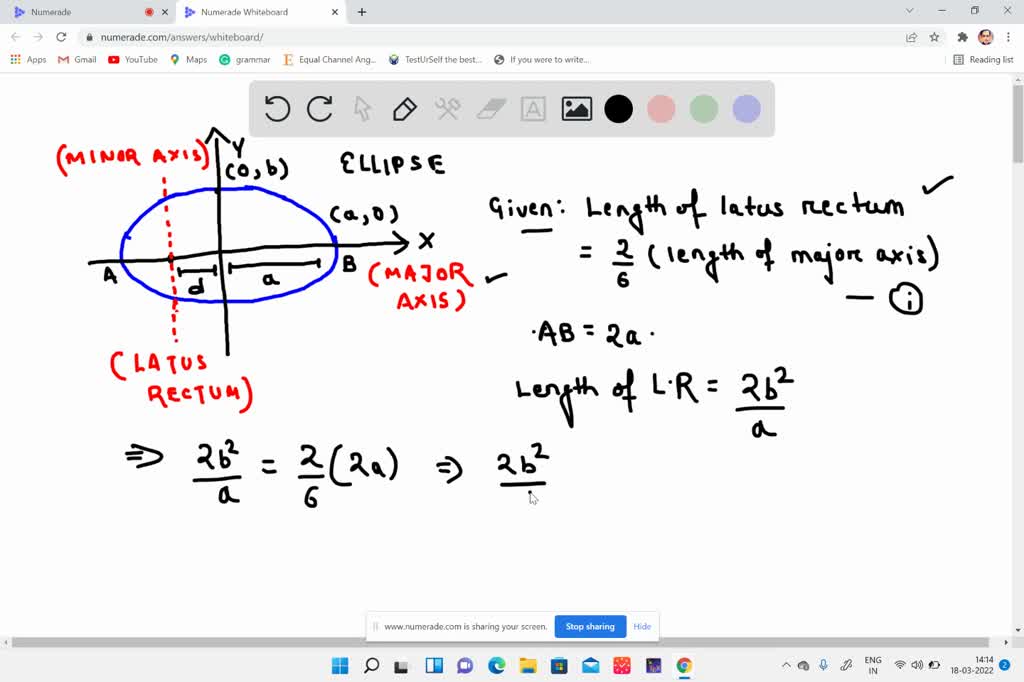 Numerade
Numerade Whiteboard
numerade.com/answers/whiteboard/
Apps
Gmail
YouTube
Maps
grammar
Equal Channel Ang...
TestUrSelf the best...
If you were to write...
Reading list
A
(MINOR AXIS)
Y
(0,b)
ELLIPSE
(a,0)
X
A
d
a
B
(MAJOR
AXIS)
(LATUS
RECTUM)
Given: Length of latus rectum
= 2/6 (length of major axis)
— i
·AB = 2a·
Length of L·R = 2b²/a
⇒ 2b²/a = 2/6 (2a) ⇒ 2b²
www.numerade.com is sharing your screen.
Stop sharing
Hide
ENG
IN
14:14
18-03-2022
2